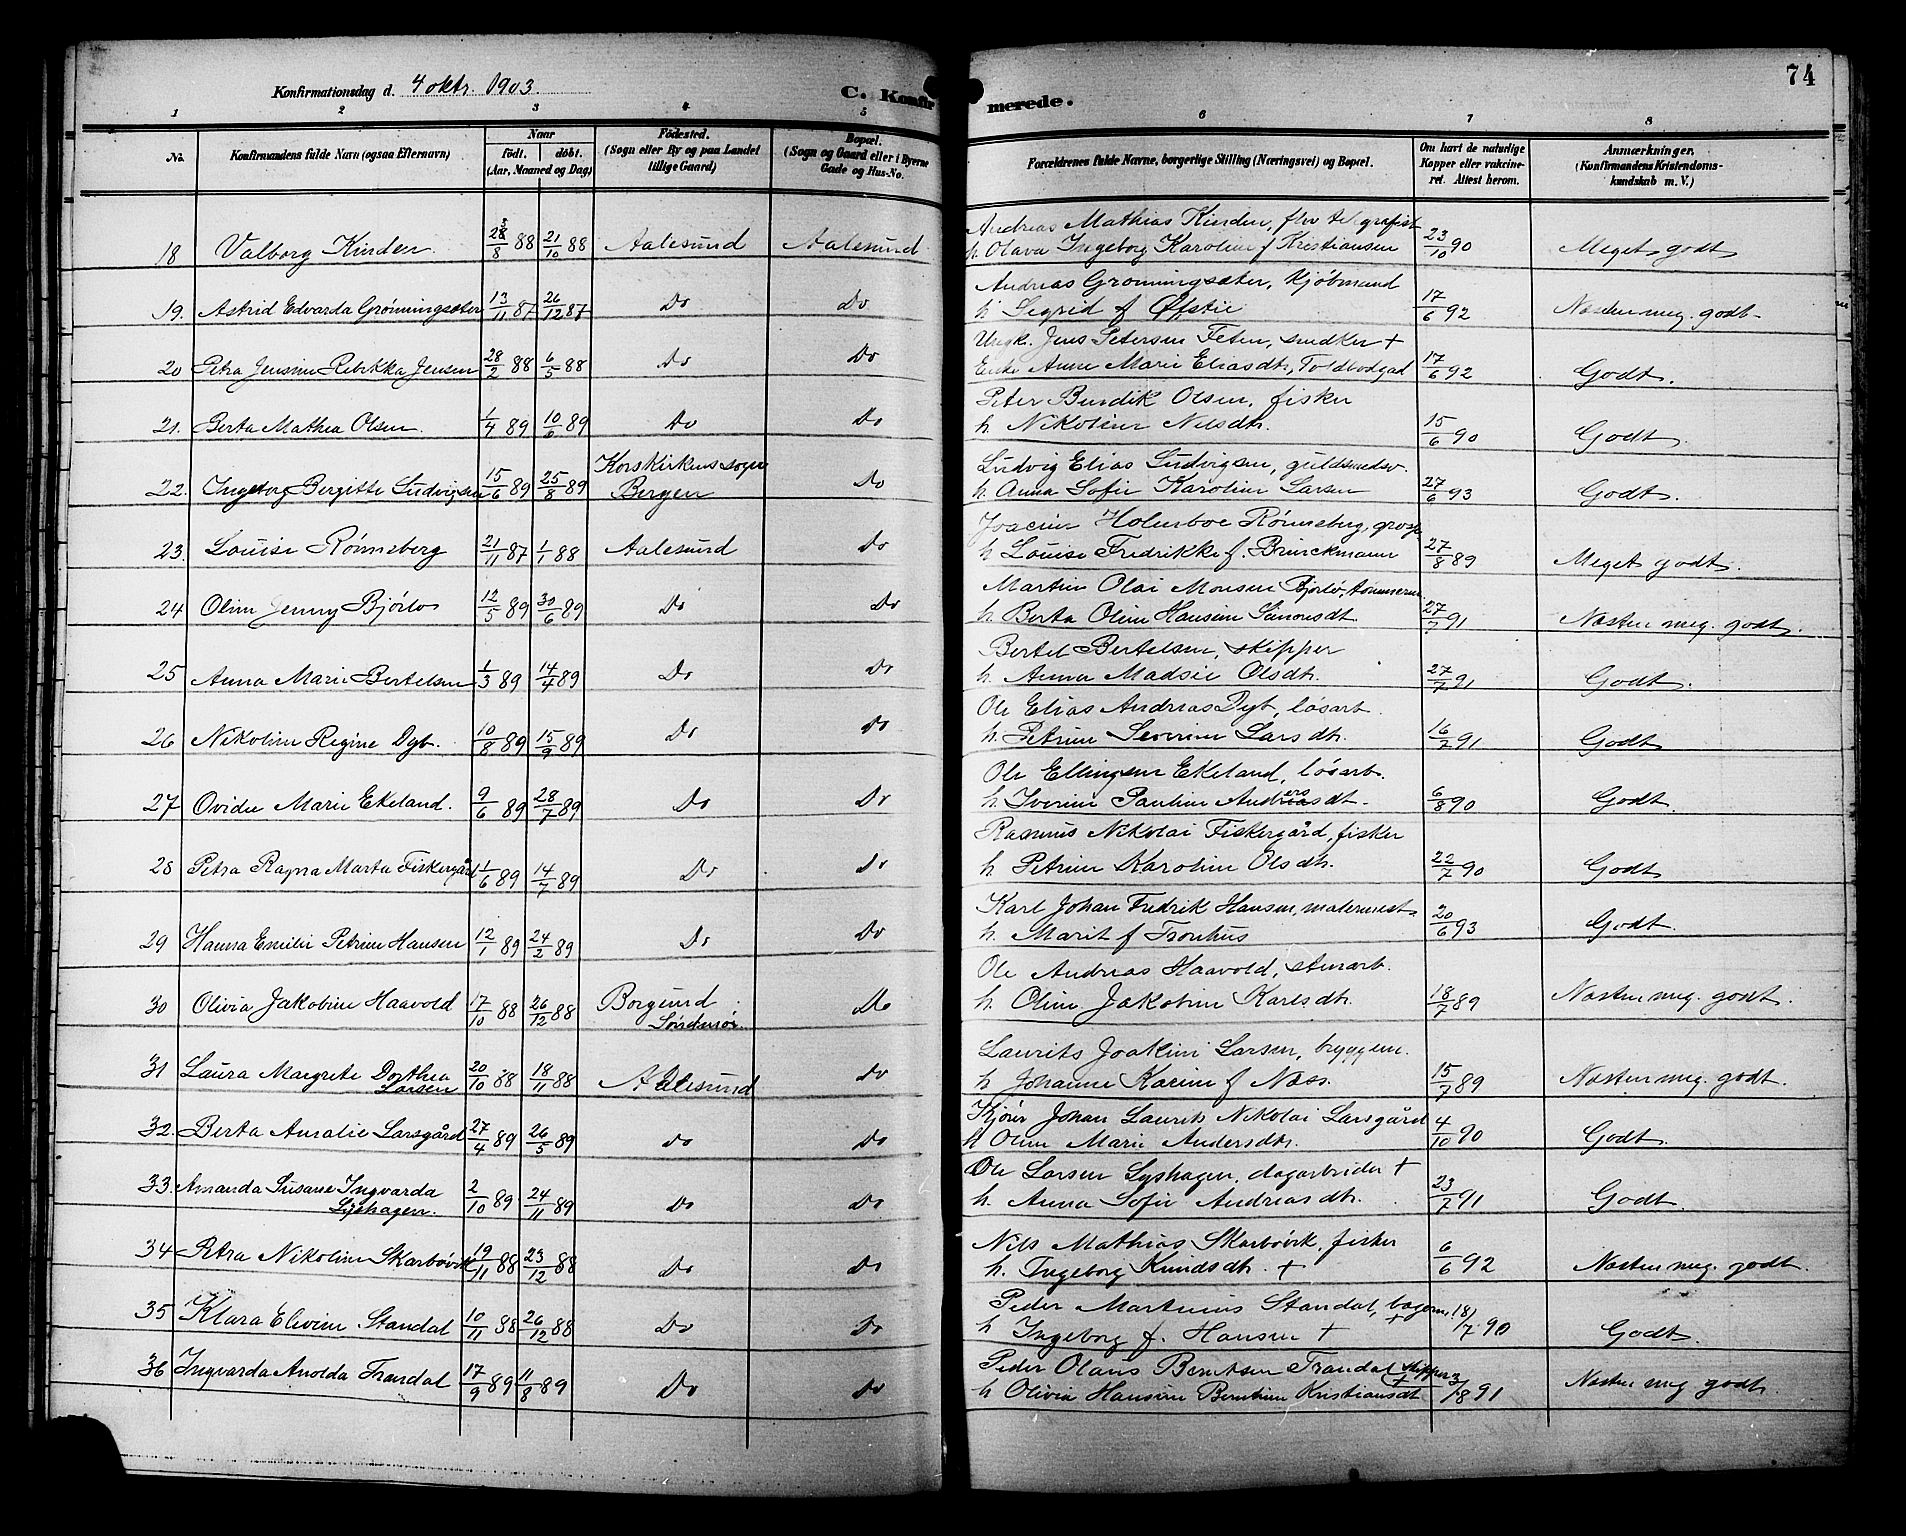 74
Konfirmationsdag d. 4 oktr. 1903.
C. Konfirmerede.
1 2 3 4 5 6 7 8
No. | Konfirmandens fulde Navn (ogsaa Efternavn) | Naar födt. döbt. (Aar, Maaned og Dag) | Födested. (Sogn eller By og paa Landet tillige Gaard) | Bopæl. (Sogn og Gaard eller i Byerne Gade og Hus-No. | Forældrenes fulde Navne, borgerlige Stilling (Næringsvei) og Bopæl. | Om havt de naturlige Kopper eller vakcineret. Attest herom. | Anmærkninger. (Konfirmandens Kristendomskundskab m. V.)
Andreas Mathias Kinden, fhv telegrafist
18 Valborg Kinden 28/8 88 21/10 88 Aalesund Aalesund h. Olava Ingeborg Karoline f Kristiansen 23/10 90 Meget godt
Andreas Grønningsæter, Kjöbmand
19. Astrid Edvarda Grønningsæter 13/11 87 26/12 87 Do Do h Sigrid f Øfstie 17/6 92 Næsten meg. godt
Ungk. Jens Petersen Feten, snedker +
20 Petra Jensine Rebekka Jensen 28/2 88 6/5 88 Do Do Enke Anne Marie Eliasdtr, Toldbodgad 17/6 92 Godt.
Peter Bendik Olsen, fisker
21. Berta Mathea Olsen. 1/4 89 10/6 89 Do Do h. Nikoline Nilsdtr. 15/6 90 Godt.
Ludvig Elias Ludvigsen, guldsmedsv.
22. Ingeborg Bergitte Ludvigsen 15/6 89 25/8 89 Korskirkens sogn Bergen Do h. Anna Sofie Karoline Larsen 27/6 93 Godt.
Joacim Holmboe Rønneberg, gross
23. Louise Rønneberg 21/11 87 1/1 88 Aalesund Do h Louise Fredrikke f. Brinckmann 27/8 89 Meget godt.
Martin Olai Monsen Bjorlo, tømmerm
24 Oline Jenny Bjørlo 12/5 89 30/6 89 Do Do h Berta Oline Hansine Simonsdt. 27/7 91 Næsten meg. godt.
Bertel Bertelsen, skipper
25 Anna Marie Bertelsen 1/3 89 14/4 89 Do Do h. Anna Madsie Olsdtr. 27/7 91 Godt.
Ole Elias Andreas Dyb, løsarb.
26 Nikoline Regine Dyb. 10/8 89 15/9 89 Do Do h. Petrine Severine Larsdtr. 16/2 91 Godt
Ole Ellingsen Ekeland, løsarb.
27 Ovidie Marie Ekeland. 9/6 89 28/7 89 Do Do h Iverine Pauline Andersdt. 6/8 90 Godt
Rasmus Nikolai Fiskergård, fisker
28 Petra Ragna Marta Fiskergård 1/6 89 14/7 89 Do Do h Petrine Karoline Olsdtr. 22/7 90 Godt
Karl Johan Fredrik Hansen, malermest
29 Hanna Emilie Petrine Hansen 12/1 89 24/2 89 Do Do h. Marit f Tronhus 20/6 93 Godt.
Ole Andreas Haavold, stenarb.
30 Olivia Jakobine Haavold 17/10 88 26/12 88 Borgund Söndmör. Do h. Oline Jakobine Karlsdtr. 18/7 89 Næsten meg. godt.
Laurits Joakim Larsen, byggm.
31 Laura Margrete Dorthea Larsen 20/10 88 18/11 88 Aalesund do h Johanne Karine f Næss. 15/7 89 Næsten meg. godt.
Kjörer Johan Laurits Nikolai Larsgård
32. Berta Amalie Larsgård 27/4 89 26/5 89 do do h Oline Marie Andersdtr. 4/10 90 Godt.
Ole Larsen Lyshagen, dagarbeider +
33. Amanda Susane Ingvarda Lyshagen. 2/10 89 24/11 89 Do Do h. Anna Sofie Andreasdtr. 23/7 91 Godt.
Nils Mathias Skarbövik, fisker
34 Petra Nikoline Skarbövik 19/11 88 23/12 88 Do Do h. Ingeborg Knudsdtr. + 6/6 92 Næsten meg. godt.
Peder Martinus Standal, bagerm. +
35 Klara Elivine Standal 10/11 88 26/12 88 Do Do h Ingeborg f. Hansen + 18/7 90 Godt.
Peder Olaus Berntsen Trandal skipper +
36 Ingvarda Anolda Trandal 17/9 89 11/8 89 Do Do h Olivia Hansine Berntine Kristiansdt 3/8 91 Næsten meg godt.